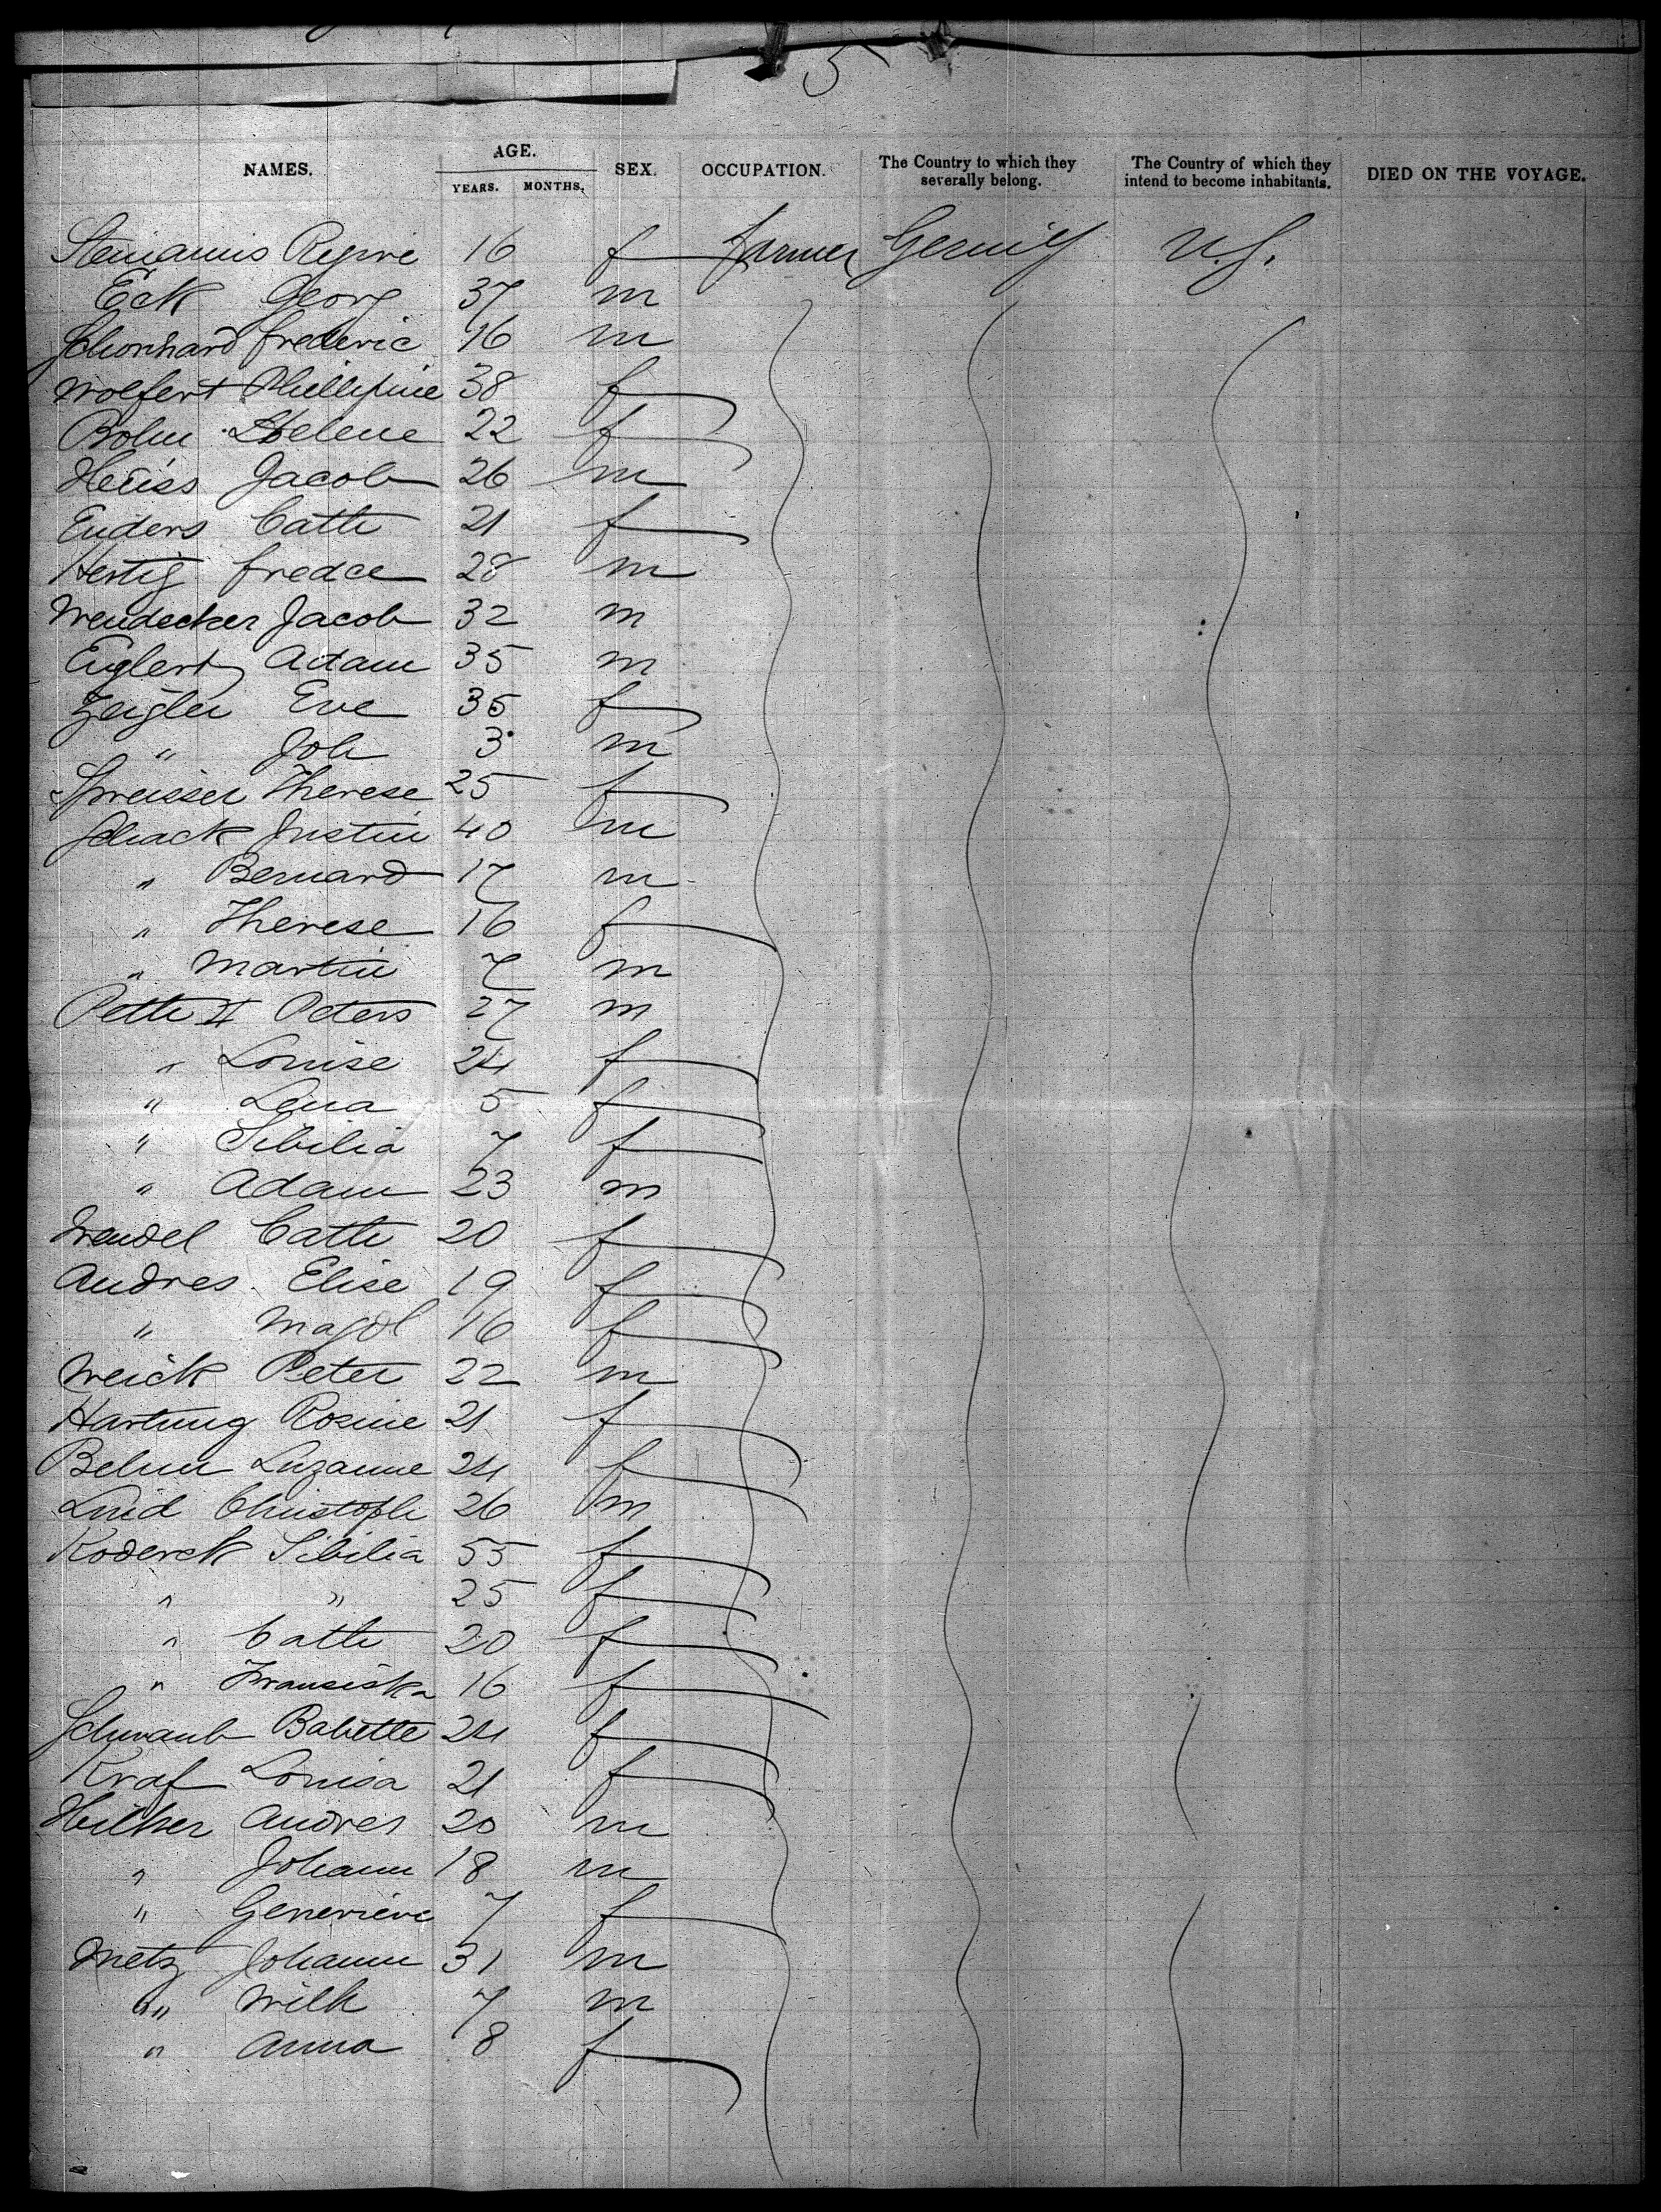 5
NAMES. AGE. YEARS. MONTHS. SEX. OCCUPATION. The Country to which they severally belong. The Country of which they intend to become inhabitants. DIED ON THE VOYAGE.
16 f farmer Germy U.S.
Eck Georg 37 m
Schonhard frederic 16 m
Wolfert Phillipine 38 f
Bohn Helene 22 f
Heüss Jacob 26 m
Enders Cath 21 f
Hertig fredce 28 m
Wendecker Jacob 32 m
Englert Adam 35 m
Zeigler Eve 35 f
" Joh 3 m
Spreisser Therese 25 f
Schack Justin 40 m
" Bernard 17 m
" Therese 16 f
" Martin 7 m
Peth II Peters 27 m
" Louise 24 f
" Lena 5 f
" Sibilia 7 f
" Adam 23 m
Wendel Cath 20 f
Andres Elise 19 f
" Magdl 16 f
Weick Peter 22 m
Hartung Rosine 21 f
Behm Suzanne 24 f
Christoph 26 m
Koderck Sibilia 55 f
" " 25 f
" Cath 20 f
" Franziska 16 f
Schwaub Babette 24 f
Kraf Louisa 21 f
Hilker Andres 20 m
" Johann 18 m
" Genevieve 7 f
Metz Johann 31 m
" Wilh 7 m
" Anna 8 f